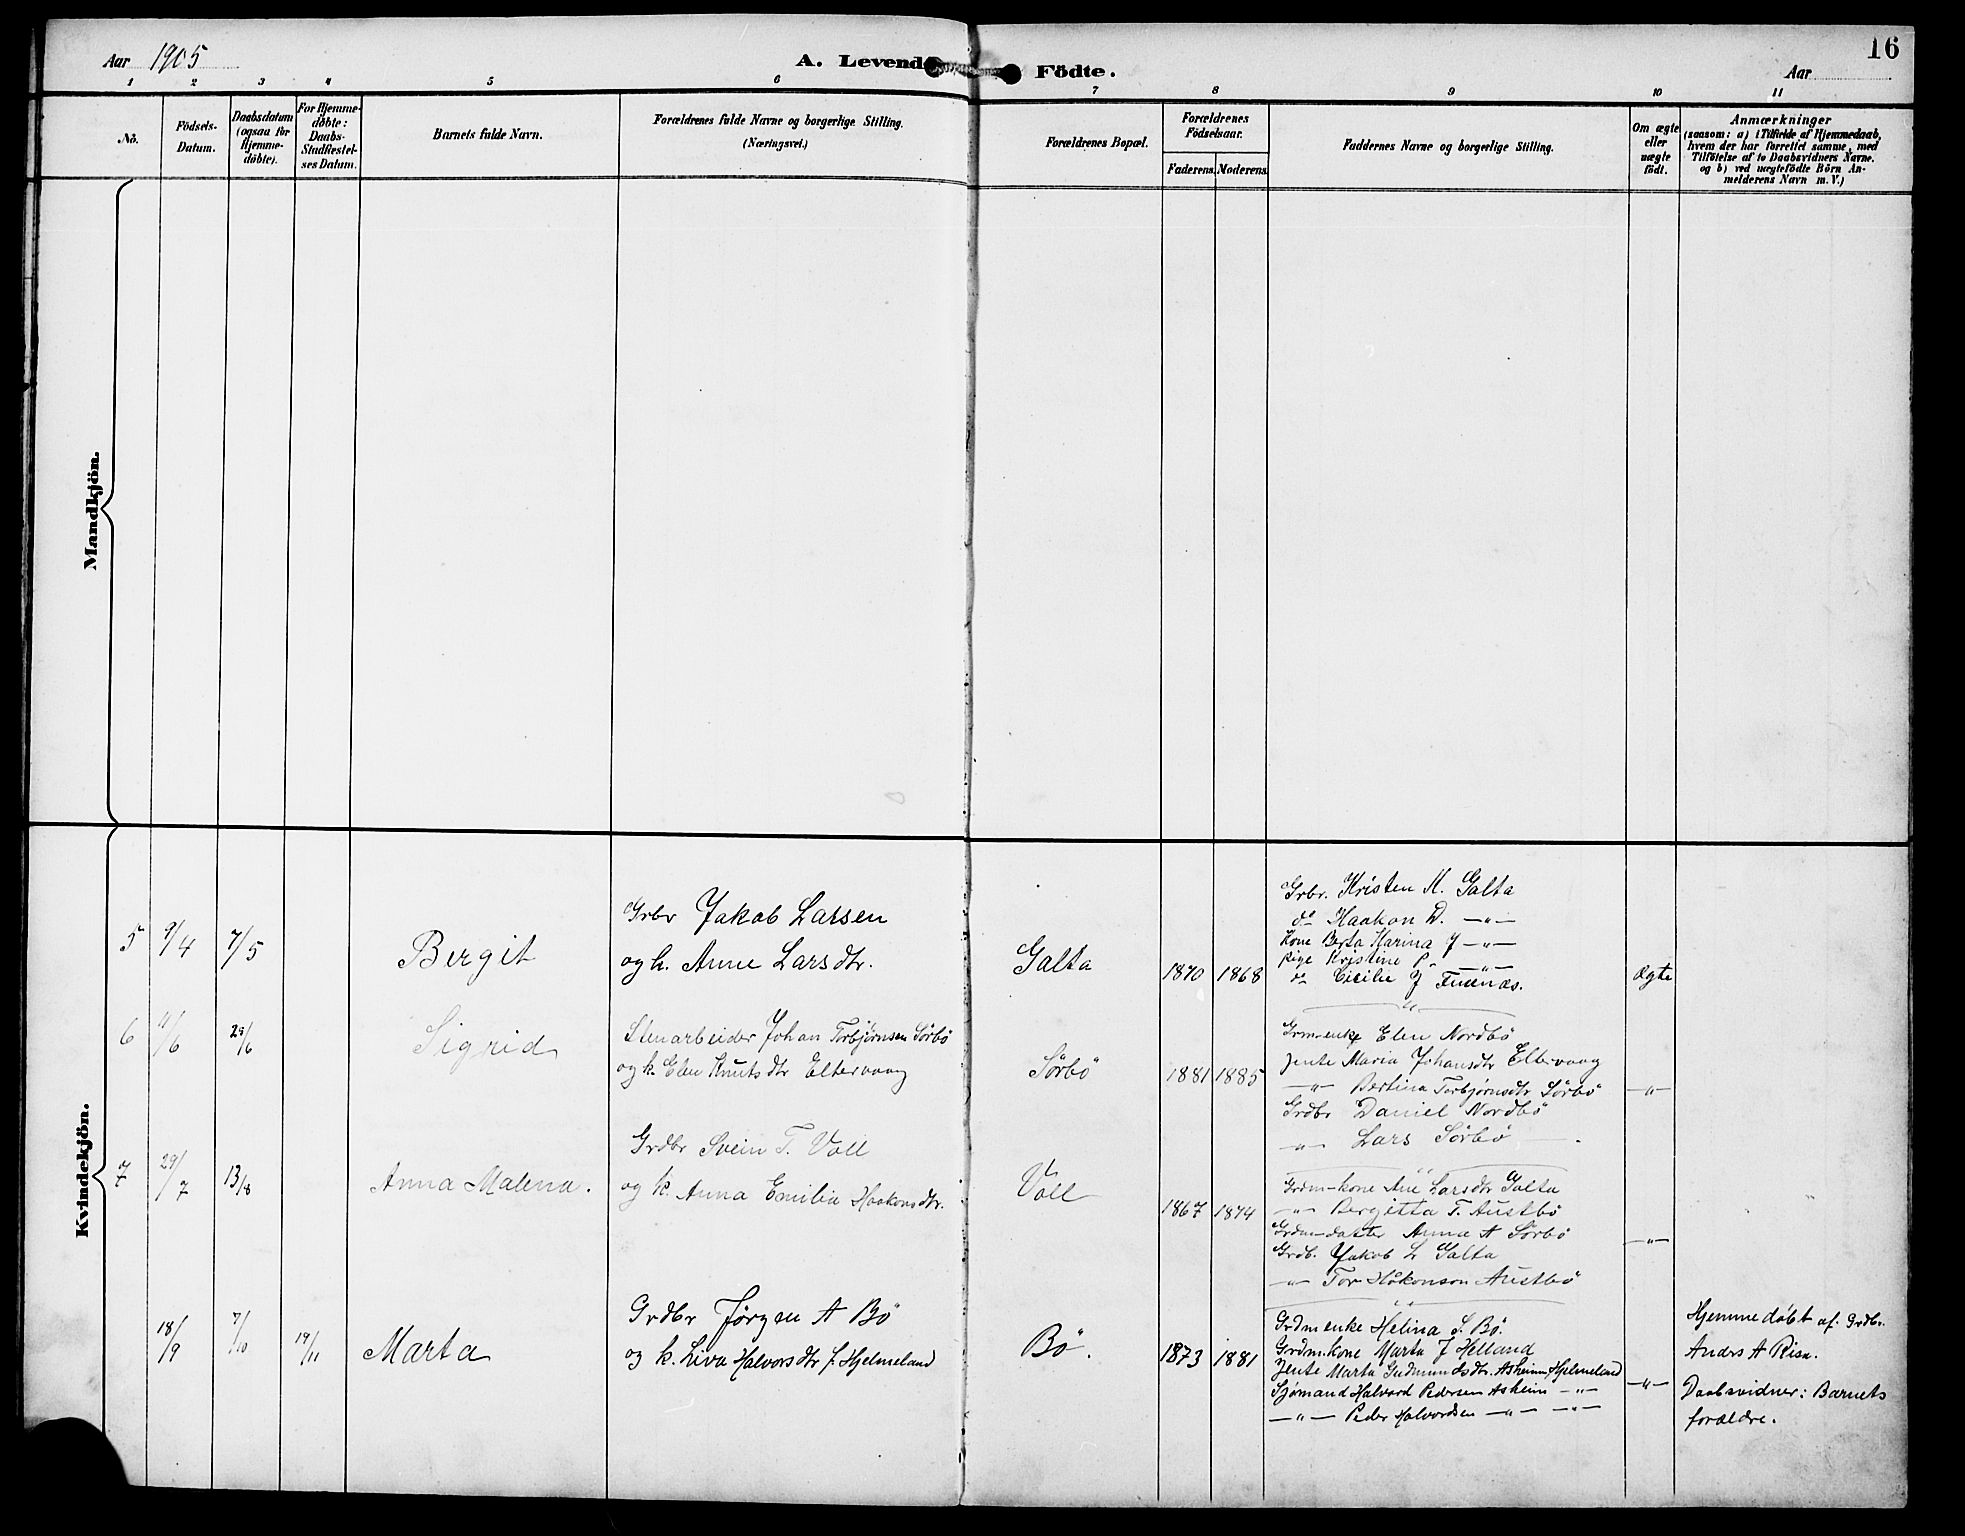 Aar 1905
A. Levende Födte.
Aar
16
1 2 3 4 5 6 7 8 9 10 11
Nó.
Födsels-
Datum.
Daabsdatum
(ogsaa for
Hjemme-
döbte).
For Hjemme-
döbte:
Daabs-
Stadfæstel-
ses Datum.
Barnets fulde Navn.
Forældrenes fulde Navne og borgerlige Stilling.
(Næringsvei.)
Forældrenes Bopæl.
Forældrenes
Födselsaar.
Faderens. Moderens.
Faddernes Navne og borgerlige Stilling.
Om ægte
eller
uægte
födt.
Anmærkninger
(saasom: a) i Tilfælde af Hjemmedaab,
hvem der har forrettet samme, med
Tilföielse af to Daabsvidners Navne.
og b) ved uægtefödte Börn An-
melderens Navn m. V.)
Mandkjön.
Kvindekjön.
5 9/4 7/5
Bergit
Grbr Jakob Larsen
og h. Anne Larsdtr.
Galta
1870 1868
Grbr. Kristen K. Galta
do Haakon D. —"—
Kone Berta Karina J —"—
Pige Kristine P. —"—
do Cicilie J
ægte
6 11/6 29/6
Sigrid
Stenarbeider Johan Torbjørnsen Sørbö
og k. Elen Knutsdtr Eltervaag
Sørbö
1881 1885
Grmenke Elen Nordbö
Jente Maria Johansdtr Eltervaag
—"— Bertina Torbjørnsdtr Sørbö
Grdbr Daniel Nordbö
—"— Lars Sørbö
—"—
7 29/7 13/8
Anna Malena.
Grdbr Svein T. Voll
og k. Anna Emilia Haakonsdtr.
Voll
1867 1874
Grdm-kone Ane Larsdtr Galta
—"— Bergitta T. Austbö
Grdm-datter Anna A Sörbö
Grdb. Jakob L Galta
—"— Tor Håkonson Austbö
—"—
18/9 7/10 19/11
Marta
Grdbr Jörgen A Bö
og k. Liva Halvorsdtr f. Hjelmeland
Bö.
1873 1881
Grdmenke Helina S. Bö.
Grdm.kone Marta J Helland
Jente Marta Gudmundsdtr. Asheim, Hjelmeland
Sjømand Halvard Pedersen Asheim —"—
—"— Peder Halvordsen —"— —"—
—"—
Hjemmedöbt af. Grdbr.
Andrs A Risa.
Daabsvidner: Barnets
forældre.